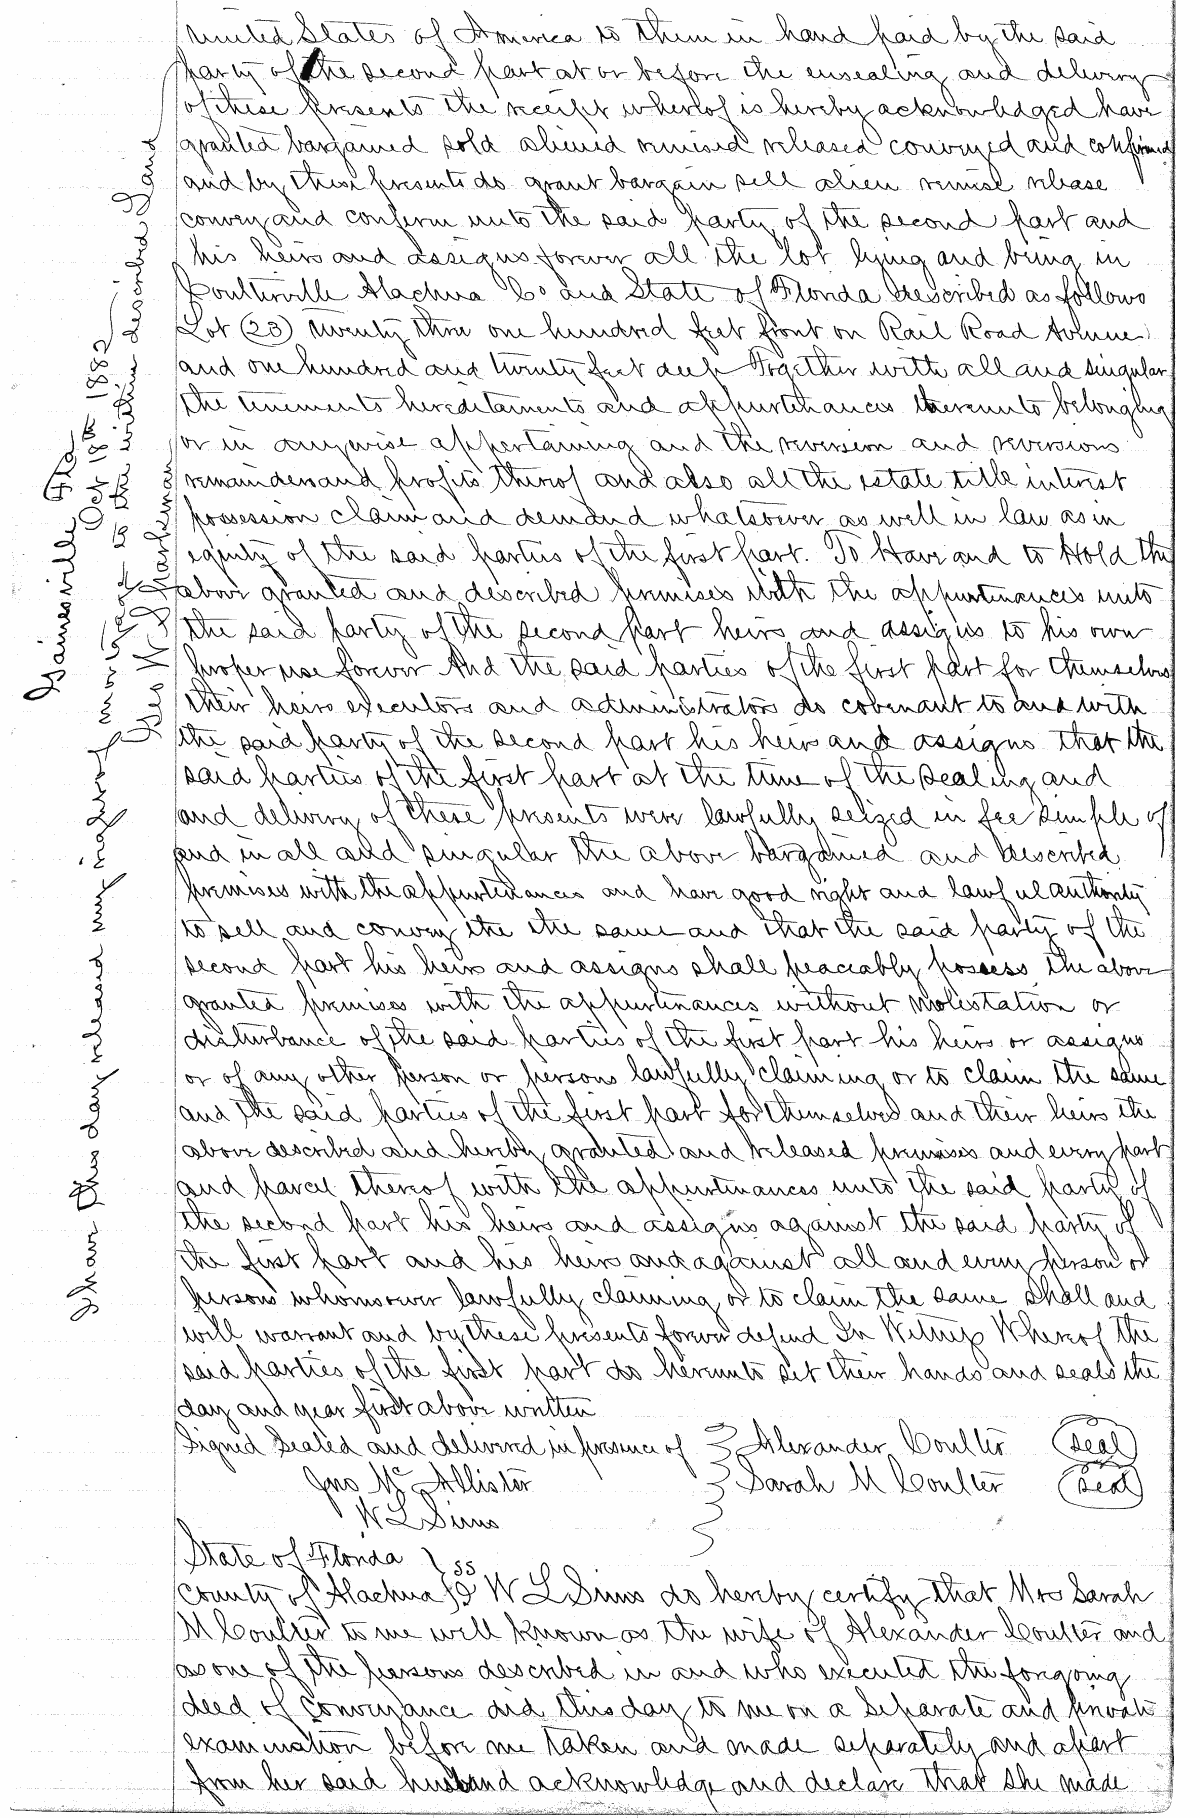 United States of America to them in hand paid by the said
party of the second part at or before the ensealing and delivery
of these Presents the receipt whereof is hereby acknowledged have
granted bargained sold aliened remised released conveyed and confirmed
and by these presents do grant bargain sell alien remise release
convey and confirm unto the said party of the second part and
his heirs and assigns forever all the lot lying and being in
Coulterville Alachua Co and State of Florida described as follows
Lot (23) twenty three one hundred feet front on Rail Road Avenue
and one hundred and twenty feet deep Together with all and singular
the tenements hereditaments and appurtenances thereunto belonging
or in anywise appertaining and the reversion and reversions
remainder and profits thereof and also all the estate title interest
possession claim and demand whatsoever as well in law as in
equity of the said parties of the first part. To Have and to Hold the
above granted and described premises with the appurtenances unto
the said party of the second part heirs and assigns to his own
proper use forever And the said parties of the first part for themselves
their heirs executors and administrators do covenant to and with
the said party of the second part his heirs and assigns that the
said parties of the first part at the time of the sealing and
and delivery of these presents were lawfully seized in fee simple of
and in all and singular the above bargained and described
premises with the appurtenances and have good right and lawful authority
to sell and convey the the same and that the said party of the
second part his heirs and assigns shall peaceably possess the above
granted premises with the appurtenances without molestation or
disturbance of the said parties of the first part his heirs or assigns
or of any other person or persons lawfully claiming or to claim the same
and the said parties of the first part for themselves and their heirs the
above described and hereby granted and released premises and every part
and parcel thereof with the appurtenances unto the said party of
the second part his heirs and assigns against the said party of
the first part and his heirs and against all and every person or
persons whomsoever lawfully claiming or to claim the same shall and
will warrant and by these presents forever defend In Witness Whereof the
said parties of the first part do hereunto set their hands and seals the
day and year first above written
Signed Sealed and delivered in presence of Alexander Coulter (Seal)
Jno McAllister Sarah M Coulter (Seal)
W L Sims
State of Florida } SS
County of Alachua } I W L Sims do hereby certify that Mrs Sarah
M Coulter to me well known as the wife of Alexander Coulter and
as one of the persons described in and who executed the foregoing
deed of Conveyance did this day to me on a separate and private
examination before me taken and made separately and apart
from her said husband acknowledge and declare that she made
Gainesville Fla
Oct 18th 1882
I have this day released my mortgage to the within described Land